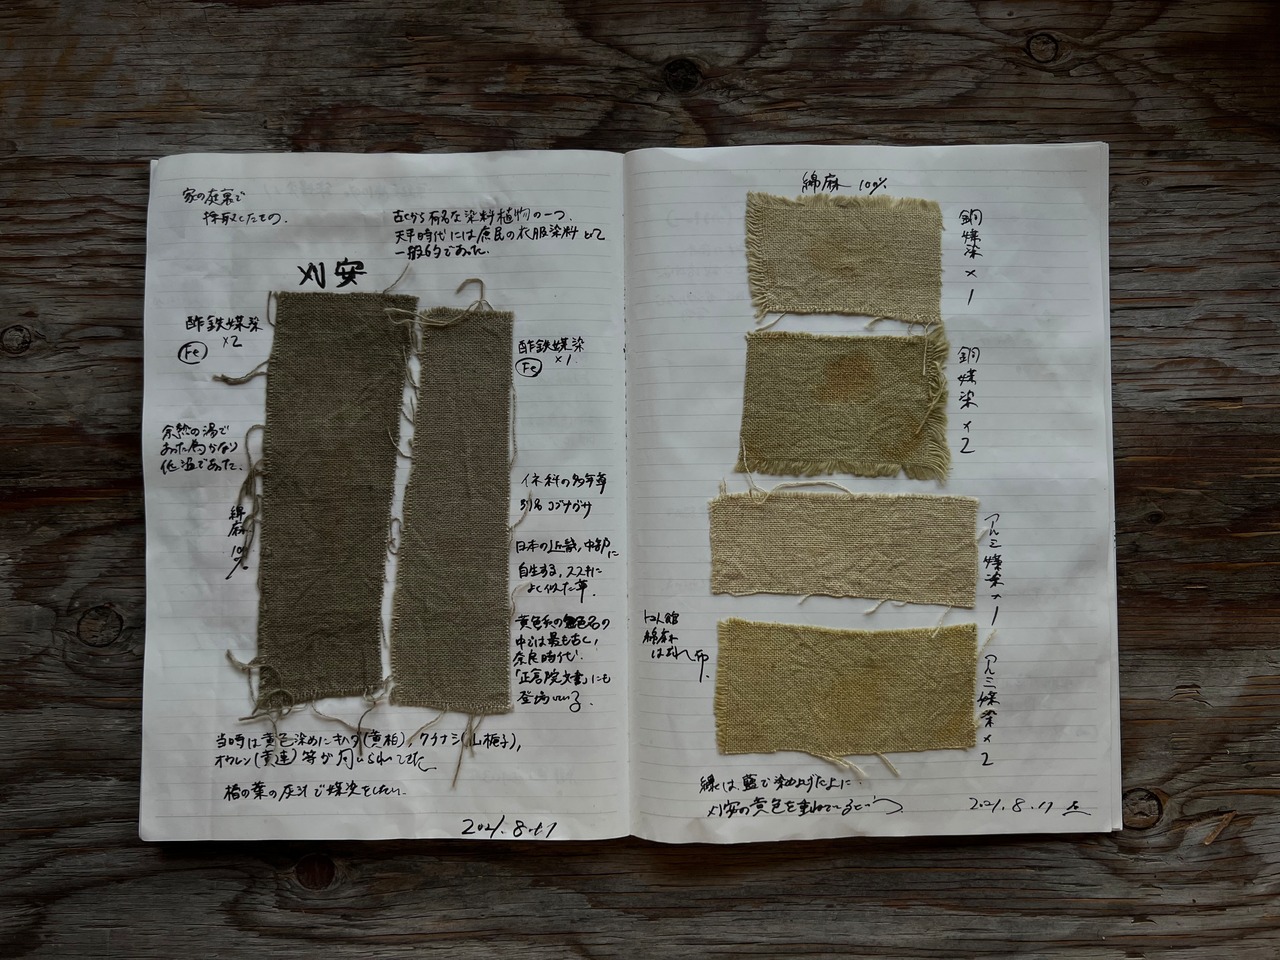 家の庭裏で
採取したもの.
古くから有名な染料植物の一つ.
天平時代には庶民の衣服染料として
一般的であった.
刈安
酢鉄媒染
×2
Fe
酢鉄媒染
×1
Fe
余熱の湯で
あった為かなり
低温であった.
綿麻 100%
イネ科の多年草
別名コブナグサ
日本の近畿,中部に
自生する,ススキに
よく似た草.
黄色系の色名の
中では最も古く,
奈良時代.
「正倉院文書」にも
登場している.
当時は黄色染めにキハダ(黄柏),クチナシ(山梔子),
オウレン(黄連)等が用いられてきた
椿の葉の灰汁で媒染をしたい.
2021.8.17
綿麻 100%
銅媒染×1
銅媒染×2
アルミ媒染×1
アルミ媒染×2
綿麻
緑は藍で染め上げた上に
刈安の黄色を重ねているという
2021.8.17